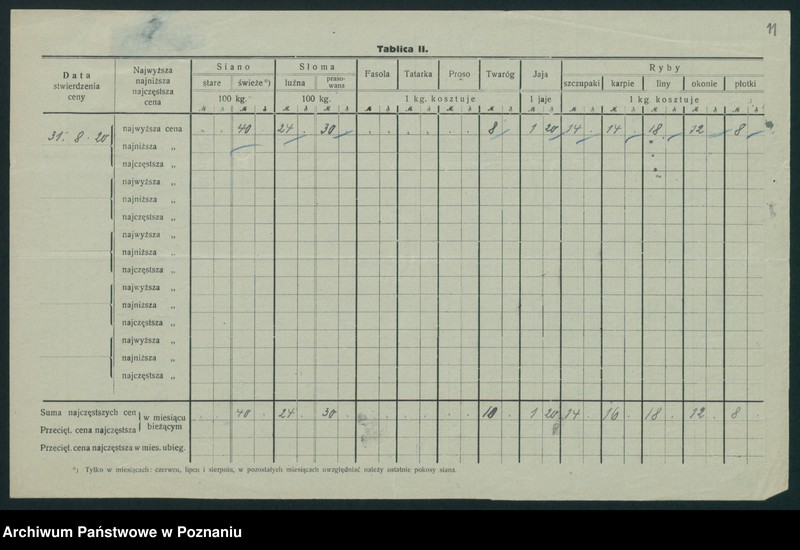 11
Tablica II.
Data stwierdzenia ceny
Najwyższa najniższa najczęstsza cena
Siano Słoma Fasola Tatarka Proso Twaróg Jaja Ryby
stare świeże*) luźna prasowana szczupaki karpie liny okonie płotki
100 kg. 100 kg. 1 kg. kosztuje 1 jaje 1 kg. kosztuje
31. 8. 20 najwyższa cena 40 24 30 8 1 20 14 14 18 12 8
najniższa „
najczęstsza „
najwyższa „
najniższa „
najczęstsza „
najwyższa „
najniższa „
najczęstsza „
najwyższa „
najniższa „
najczęstsza „
najwyższa „
najniższa „
najczęstsza „
Suma najczęstszych cen w miesiącu bieżącym 40 24 30 10 1 20 14 16 18 12 8
Przecięt. cena najczęstsza
Przecięt. cena najczęstsza w mies. ubieg.
*) Tylko w miesiącach: czerwcu, lipcu i sierpniu, w pozostałych miesiącach uwzględniać należy ostatnie pokosy siana.
Archiwum Państwowe w Poznaniu